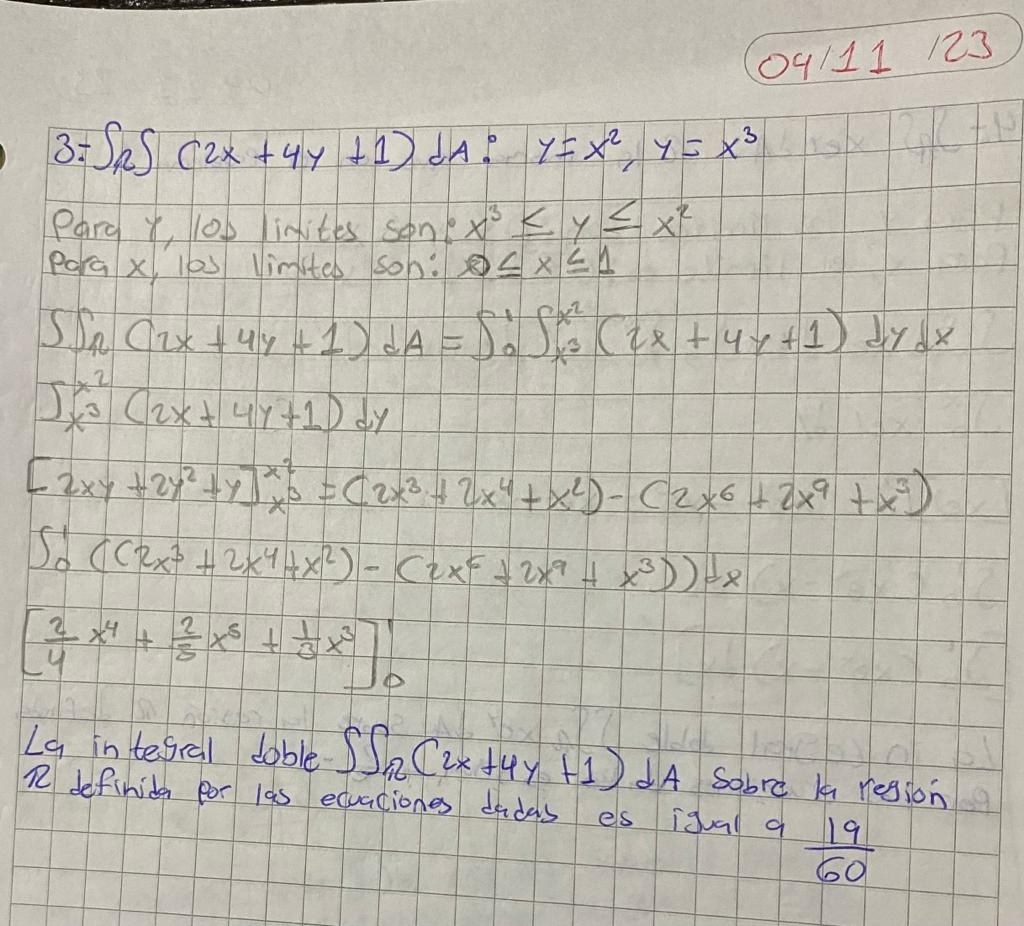 04/11/23
3.- ∫R∫ (2x + 4y + 1) dA: y = x², y = x³
Para y, los limites son: x³ ≤ y ≤ x²
Para x, los limites son: 0 ≤ x ≤ 1
∫∫R (2x + 4y + 1) dA = ∫₀¹ ∫x³^x² (2x + 4y + 1) dy dx
∫x³^x² (2x + 4y + 1) dy
[2xy + 2y² + y]x³^x² = (2x³ + 2x⁴ + x²) - (2x⁶ + 2x⁹ + x³)
∫₀¹ ((2x³ + 2x⁴ + x²) - (2x⁶ + 2x⁹ + x³)) dx
[2/4 x⁴ + 2/5 x⁵ + 1/3 x³]₀¹
La integral doble ∫∫R (2x + 4y + 1) dA sobre la región
R definida por las ecuaciones dadas es igual a 19/60